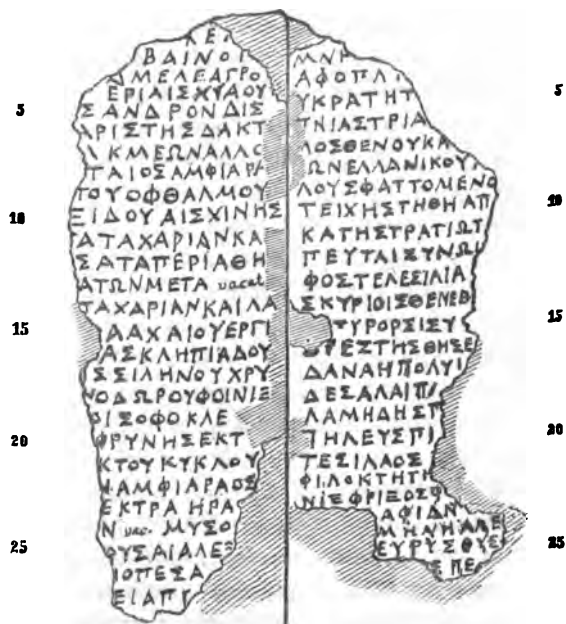 ΛΕ
ΒΑΙΝΟΙ
ΜΕΛΕΑΓΡΟ
ΕΡΙΑΙΣΧΥΛΟΥ
5 ΣΑΝΔΡΟΝΔΙΣ
ΑΡΙΣΤΗΣΔΑΚΤ
ΛΚΜΕΩΝΑΛΛΟ
ΤΑΙΟΣΑΜΦΙΑΡΑ
ΤΟΥΟΦΘΑΛΜΟΥ
10 ΞΙΔΟΥΑΙΣΧΙΝΗΣ
ΑΤΑΧΑΡΙΑΝΚΑ
ΣΑΤΑΠΕΡΙΑΘΗ
ΑΤΩΝΜΕΤΑ vacat
ΤΑΧΑΡΙΑΝΚΑΙΛΑ
15 ΑΑΧΑΙΟΥΕΡΓΙ
ΑΣΚΛΗΠΙΑΔΟΥ
ΣΣΙΛΗΝΟΥΧΡΥ
ΝΟΔΩΡΟΥΦΟΙΝΙΞ
ΒΙΣΟΦΟΚΛΕ
20 ΦΡΥΝΗΣΕΚΤ
ΚΤΟΥΚΥΚΛΟΥ
ΑΜΦΙΑΡΑΟΣ
ΕΚΤΡΑΗΡΑ
Ν vac. ΜΥΣΟ
25 ΟΥΣΑΙΑΛΕΞ
ΙΟΠΕΣΑ
ΕΙΑΠΓ
ΜΝΗ
ΑΦΟΠΛΙ
ΥΚΡΑΤΗΤ 5
ΤΝΙΑΣΤΡΙΑ
ΛΟΣΘΕΝΟΥΚΑ
ΩΝΕΛΛΑΝΙΚΟΥ
ΛΟΥΣΦΑΤΤΟΜΕΝΟ
ΤΕΙΧΗΣΤΗΘΗΑΠ 10
ΚΑΤΗΣΤΡΑΤΙΩΤ
ΠΕΥΤΑΙΣΥΝΩΙ
ΦΟΣΤΕΛΕΣΙΛΙΑ
ΣΚΥΡΙΟΙΣΘΕΝΕΒ
ΤΥΡΟΡΣΙΣΥ 15
ΟΡΕΣΤΗΣΘΗΣΕ
ΔΑΝΑΗΠΟΛΥΙ
ΔΕΣΑΛΑΙΠΙ
ΛΑΜΗΔΗΣΓ
ΠΗΛΕΥΣΠΙ 20
ΤΕΣΙΛΑΟΣ
ΦΙΛΟΚΤΗΤΗ
ΝΙΞΦΡΙΞΟΣΦ
ΑΦΙΔΝ
ΜΗΛΗΑΛΕ
ΕΥΡΥΣΘΥΕ 25
ΣΠΕ